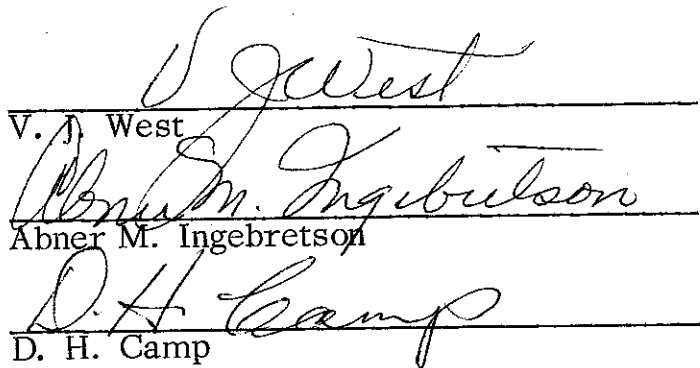 V J West
V. J. West
Abner M. Ingebretson
Abner M. Ingebretson
D. H Camp
D. H. Camp